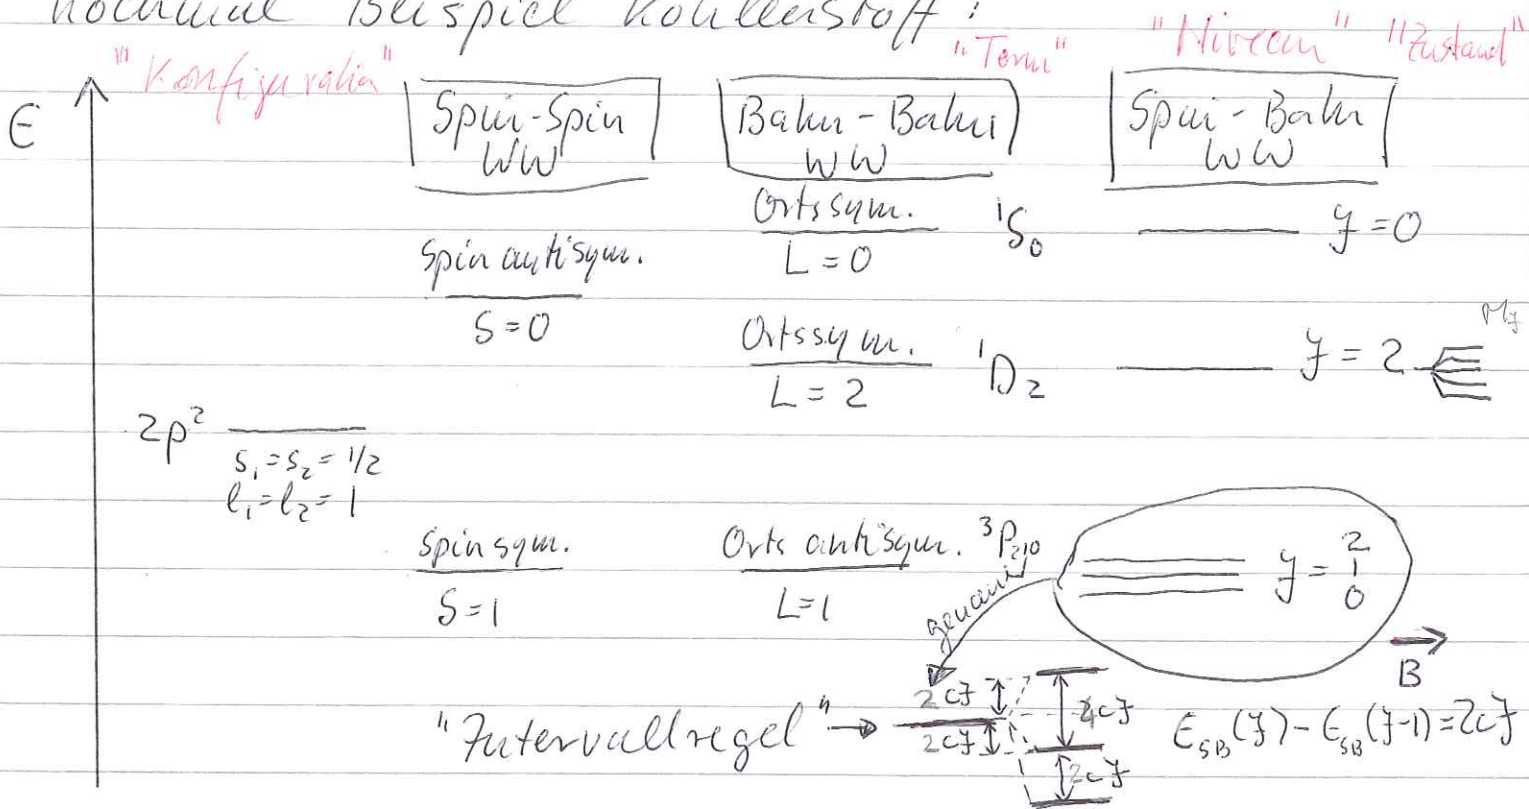 nochmal Beispiel Kohlenstoff:
"Konfiguration" "Term" "Niveau" "Zustand"
E
Spin-Spin WW
Bahn-Bahn WW
Spin-Bahn WW
Ortssym. ¹S₀ J=0
L=0
Spin antisym.
S=0
Ortssym. ¹D₂ J=2 M_J
L=2
2p²
s₁=s₂=1/2
l₁=l₂=1
Spinsym. Orts antisym. ³P₂,₁,₀ J= 2 1 0
S=1 L=1
genauer
B
"Intervallregel" → 2cJ 2cJ 4cJ 2cJ E_SB(J)-E_SB(J-1)=2cJ